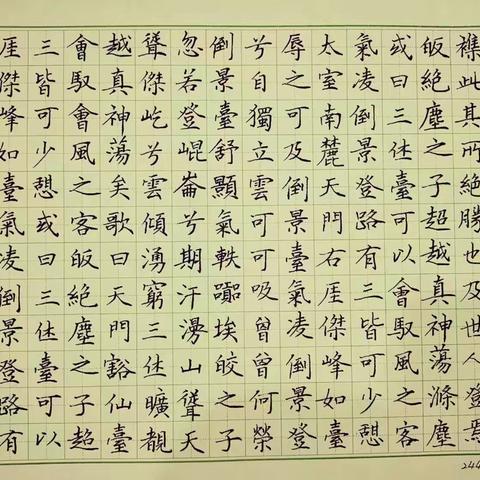 襟此其所絕勝也及世人登焉
皈絕塵之子超越真神蕩滌塵
或曰三休臺可以會馭風之客
氣凌倒景登路有三皆可少憩
太室南麓天門右崖傑峰如臺
辱之可及倒景臺氣凌倒景登
兮自獨立雲可可吸曾曾何榮
倒景臺舒顥氣軼囂埃皎之子
忽若登崐崙兮期汗漫山聳天
聳傑屹兮雲傾湧窮三休曠覩
越真神蕩矣歌曰天門豁仙臺
會馭會風之客皈絕塵之子超
三皆可少憩或曰三休臺可以
崖傑峰如臺氣凌倒景登路有